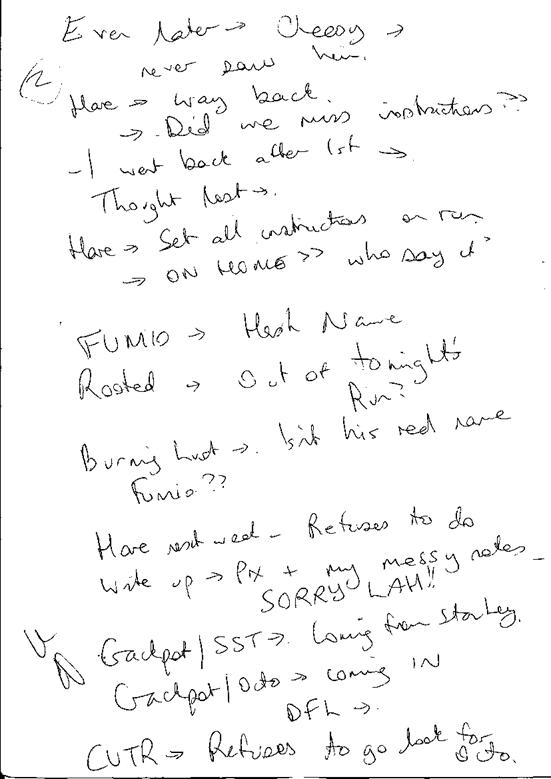 Even later → Cheesy →
never saw him.
(2)
Hare → way back.
→ Did we miss instructions??
- I went back after 1st →
Thought lost →.
Hare → Set all instructions on run
→ ON HOME >> who say it?
FUMIO → Hash Name
Rooted → Out of tonight's
Run?
Burning Lust →. Isn't his real name
Fumio??
Hare next week - Refuses to do
write up → Pix + my messy notes -
SORRY LAH!!
Gackpot/SST →. Coming from Stanley.
Gackpot/Octo → coming IN
DFL →.
CUTR → Refuses to go look for
Octo.